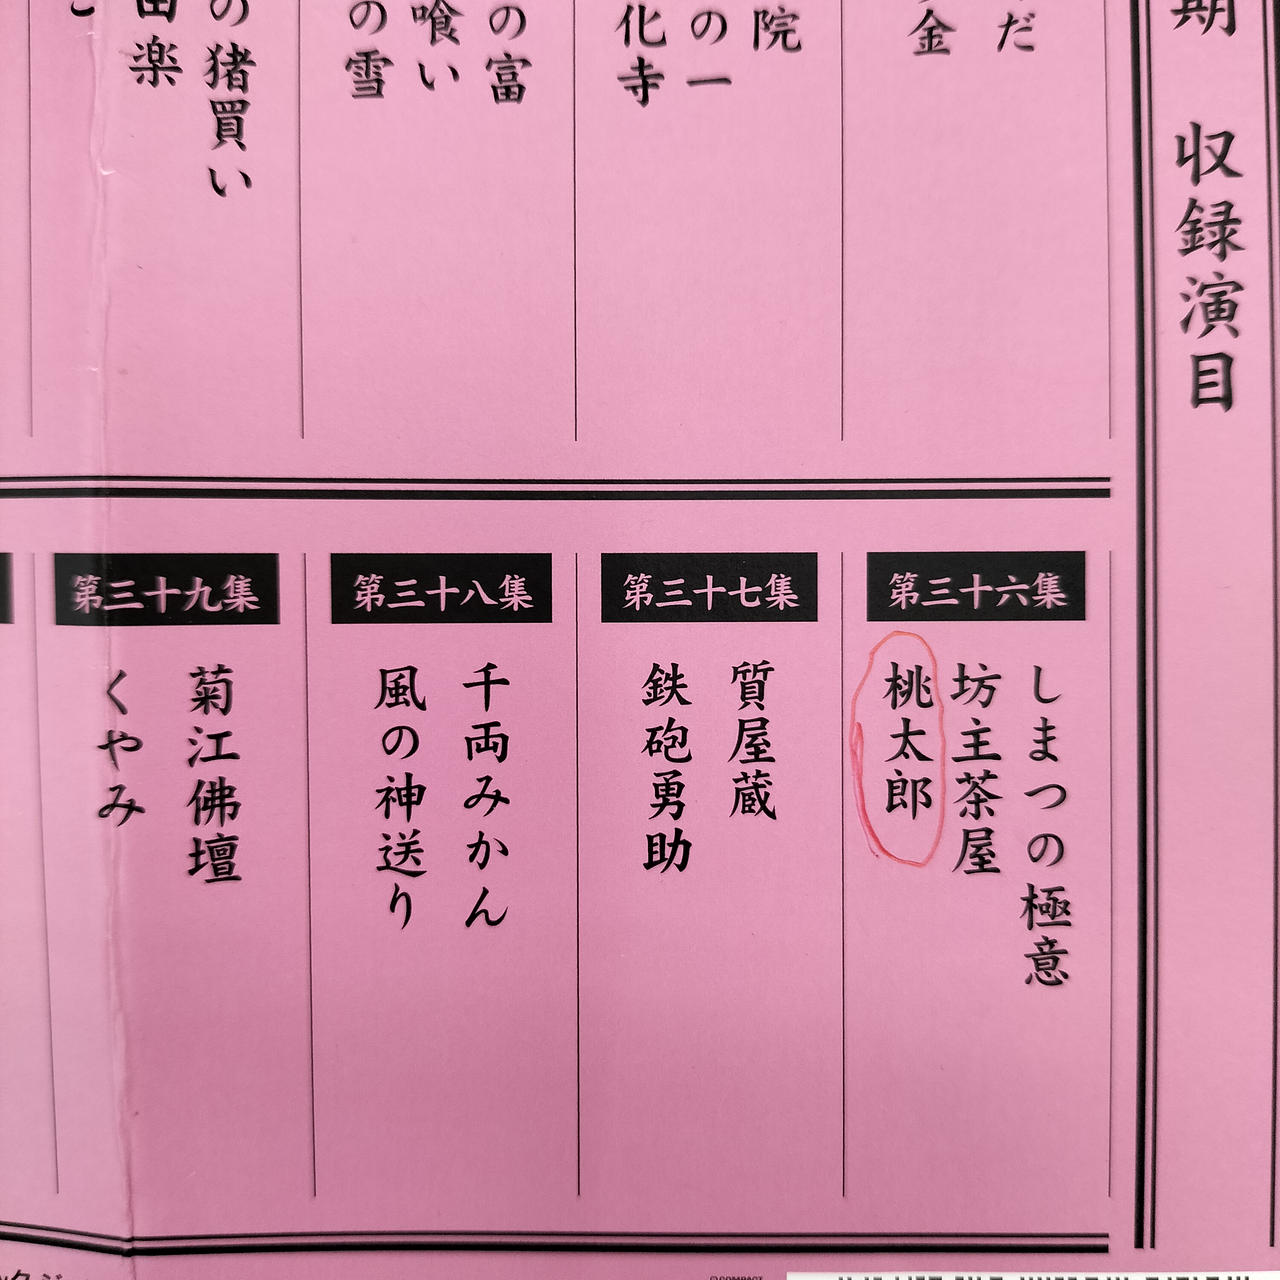 期 収録演目
だ
金
院
の一
化寺
の富
喰い
の雪
の猪買い
楽
第三十六集
しまつの極意
坊主茶屋
桃太郎
第三十七集
質屋蔵
鉄砲勇助
第三十八集
千両みかん
風の神送り
第三十九集
菊江佛壇
くやみ
COMPACT